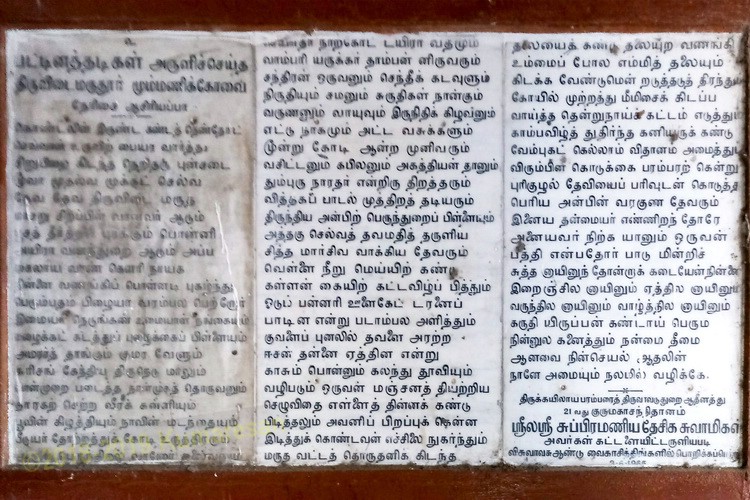 உ
பட்டினத்தடிகள் அருளிச்செய்த
திருவிடைமருதூர் மும்மணிக்கோவை
நேரிசை ஆசிரியப்பா
தெய்வத்
தேவ தேவ திருவிடை மருத
ஆடும்
பொன்னி
ஆடும் அப்ப
நாயக
நின்னை வணங்கிப் பொன்னடி புகழ்ந்து
பெரும்பதம் பிழையா வரம்பல பெற்றோர்
இமையா நெடுங்கண் உமையாள் நங்கையும்
மழைக்கட் கடத்துப் புழைக்கைப் பிள்ளையும்
அமரர்த் தாங்கும் குமர வேளும்
சுரிசங் கேந்திய திருநெடு மாலும்
நான்முகத் தொருவனும்
தாரகற் செற்ற வீரக் கன்னியும்
பூவின் கிழத்தியும் நாவின் மடந்தையும்
நாற்கோட் டயிரா வதமும்
வாம்பரி யருக்கர் தாம்பன் னிருவரும்
சந்திரன் ஒருவனும் செந்தீக் கடவுளும்
நிருதியும் சமனும் சுருதிகள் நான்கும்
வருணனும் வாயுவும் திருநிதிக் கிழவனும்
எட்டு நாகமும் அட்ட வசுக்களும்
மூன்று கோடி ஆன்ற முனிவரும்
வசிட்டனும் கபிலனும் அகத்தியன் தானும்
தும்புரு நாரதர் என்றிரு திறத்தரும்
வித்தகப் பாடல் முத்திறத் தடியரும்
திருந்திய அன்பிற் பெருந்துறைப் பிள்ளையும்
அத்தகு செல்வத் தவமதித் தருளிய
சித்த மார்சிவ வாக்கிய தேவரும்
வெள்ளை நீறு மெய்யிற் கண்டு
கள்ளன் கையிற் கட்டவிழ்ப் பித்தும்
ஓடும் பன்னரி ஊளைகேட் டரனைப்
பாடின என்று படாம்பல அளித்தும்
குவளைப் புனலில் தவளை அரற்ற
ஈசன் தன்னை ஏத்தின என்று
காசும் பொன்னும் கலந்து தூவியும்
வழிபடும் ஒருவன் மஞ்சனத் தியற்றிய
செழுவிதை எள்ளைத் தின்னக் கண்டு
பிடித்தலும் அவனிப் பிறப்புக் கென்ன
இடித்துக் கொண்டவன் எச்சிலை நுகர்ந்தும்
மருத வட்டத் தொருதனிக் கிடந்த
தலையைக் கண்டு தலையுற வணங்கி
உம்மைப் போல எம்மித் தலையும்
கிடக்க வேண்டுமென் றடுத்தடுத் திரந்தும்
கோயில் முற்றத்து மீமிசைக் கிடப்ப
வாய்த்த தென்றுநாய்க் கட்டம் எடுத்தும்
காம்பவிழ்த் துதிர்ந்த கனியுருக் கண்டு
வேம்புகட் கெல்லாம் விதானம் அமைத்தும்
விரும்பின் கொடுக்கை பரம்பரற் கென்று
புரிகுழல் தேவியைப் பரிவுடன் கொடுத்த
பெரிய அன்பின் வரகுண தேவரும்
இனைய தன்மையர் எண்ணிறந் தோரே
அனையவர் நிற்க யானும் ஒருவன்
பத்தி என்பதோர் பாடு மின்றிச்
சுத்த னாயினுந் தோன்றாக் கடையேன்நின்னை
இறைஞ்சில னாயினும் ஏத்தில னாயினும்
வருந்தில னாயினும் வாழ்த்தில னாயினும்
கருதி யிருப்பன் கண்டாய் பெரும
நின்னுல கனைத்தும் நன்மை தீமை
ஆனவை நின்செயல் ஆதலின்
நானே அமையும் நலமில் வழிக்கே.
திருக்கயிலாய பரம்பரைத் திருவாவடுதுறை ஆதீனத்து
21 வது குருமகாசந் நிதானம்
ஸ்ரீலஸ்ரீ சுப்பிரமணிய தேசிக சுவாமிகள்
அவர்கள் கட்டளையிட்டருளியபடி
விசுவாவசு ஆண்டு வைகாசித்திங்களில் பொறிக்கப்பெ